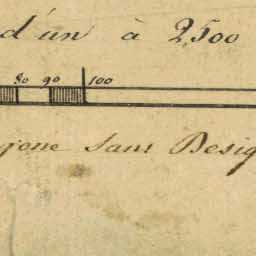 d'un à 2500
80 90 100
sans Desig